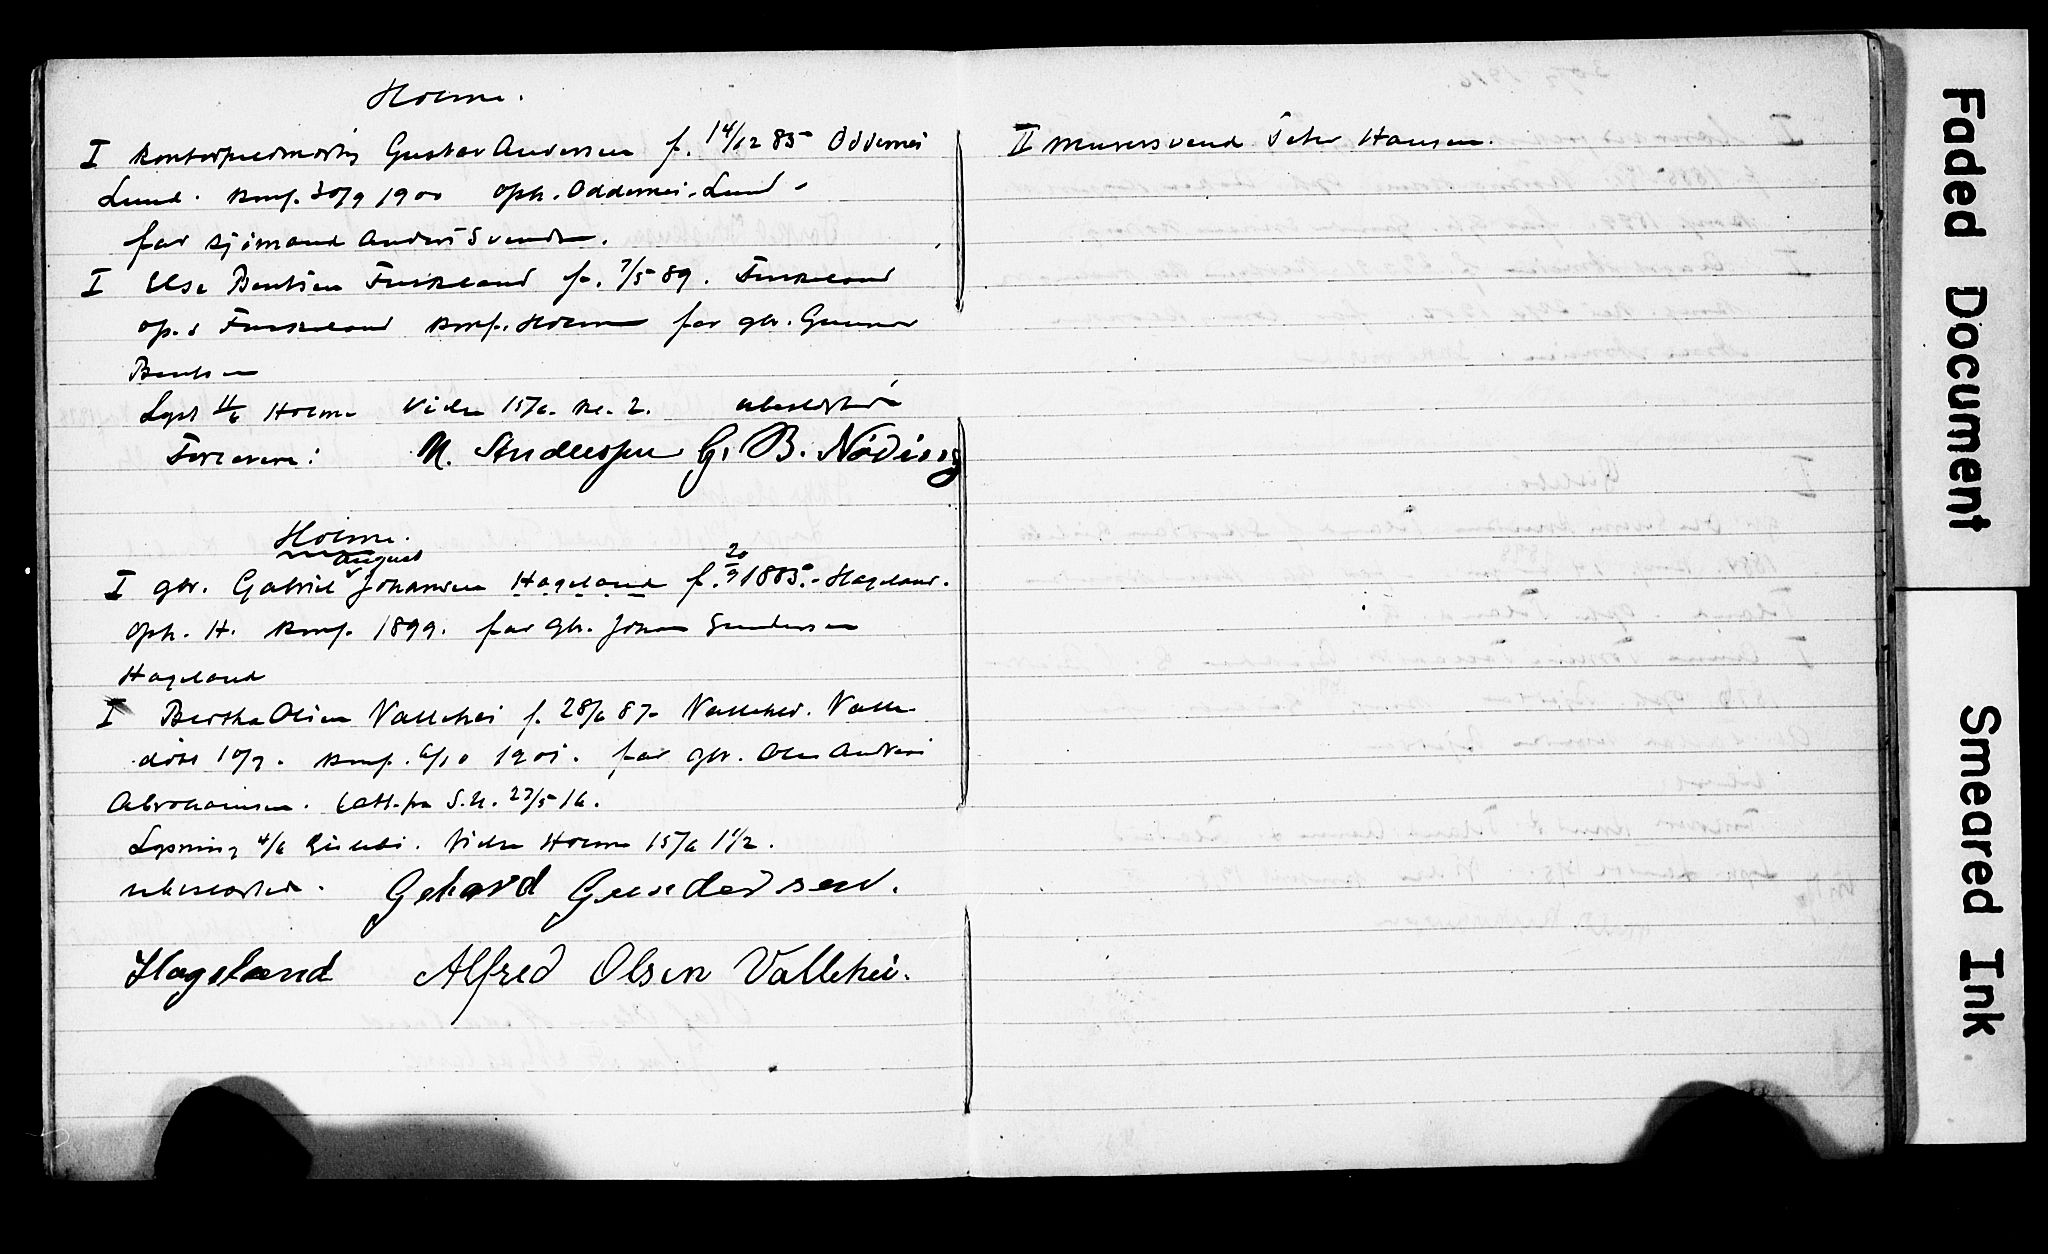 Holme.
I Kontorfuldmægtig Gustav Andersen f. 14/12 85 Oddernes
Lund. konf. 30/9 1900 oph. Oddernes. Lund.
far sjømand Anders Svendsen.
I Else Bentsen Fuskeland f. 7/5 89. Fuskeland
op. s Fuskeland konf. Holme far gbr. Gunnar
Bentsen
Lyst 11/6 Holme Vies 15/6. kl. 2. ubeslægtede
Forlovere: N. Andersen G. B. Nøding
Holme.
August
I gbr. Gabriel Johansen Hageland f. 20/9 1885. Hageland.
oph. H. konf. 1899. far gbr. Johan Gundersen
Hageland
I Bertha Olsen Vallehei f. 28/6 87 Vallehei. Valle
døbt 10/7. konf. 6/10 1901. far gbr. Ole Andreas
Abrahamsen. Att. fra S.U. 27/5 16.
Lysning 4/6 Vies Holme 15/6 1 1/2.
ubeslægtede. Gehard Gundersen.
Hageland Alfred Olsen Vallehei.
II Murersvend Peter Hansen.
Faded Document
Smeared Ink